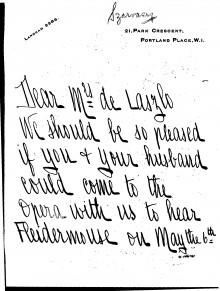 Szarvasy
LANGHAM 2380.
21, PARK CRESCENT,
PORTLAND PLACE, W.1.
Dear Mrs de Laszlo
We should be so pleased
if you & your husband
could come to the
Opera with us to hear
Fleidermouse on May the 6th